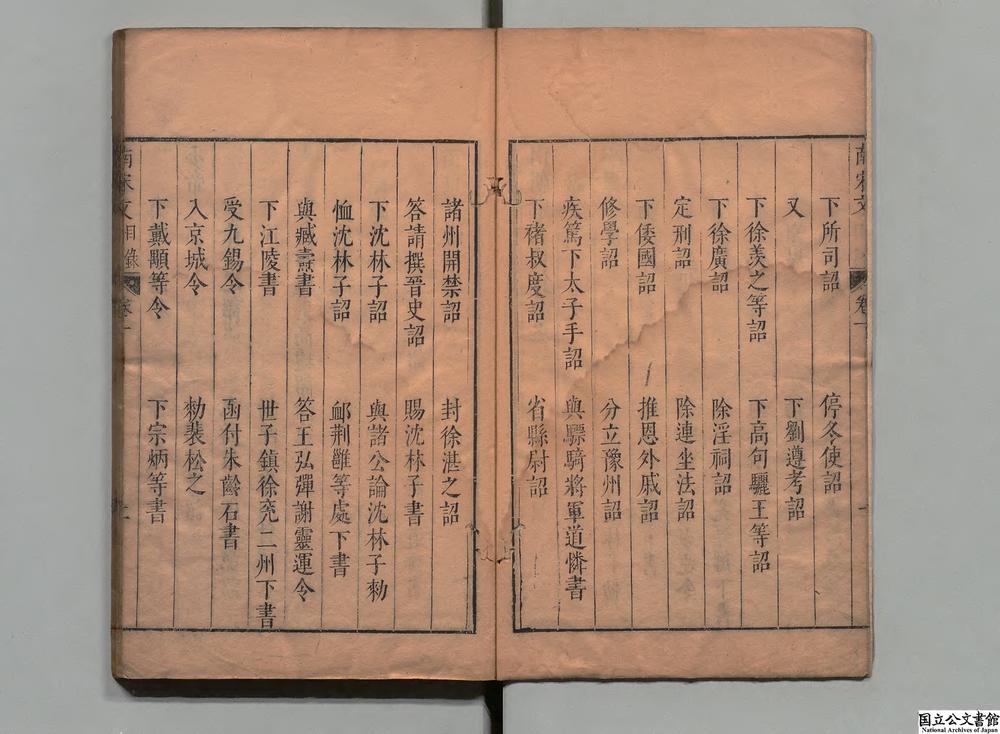 南宋文
卷一
下所司詔　停冬使詔
又　下劉遵考詔
下徐羨之等詔　下高句驪王等詔
下徐廣詔　除淫祠詔
定刑詔　除連坐法詔
下倭國詔　推恩外戚詔
修學詔　分立豫州詔
疾篤下太子手詔　與驃騎將軍道憐書
下褚叔度詔　省縣尉詔
諸州開禁詔　封徐湛之詔
答請撰晉史詔　賜沈林子書
下沈林子詔　與諸公論沈林子勑
恤沈林子詔　䘏荆雝等處下書
與臧燾書　答王弘彈謝靈運令
下江陵書　世子鎮徐兖二州下書
受九錫令　函付朱齡石書
入京城令　勑裴松之
下戴顒等令　下宗炳等書
南宋文目錄
卷一
国立公文書館
National Archives of Japan